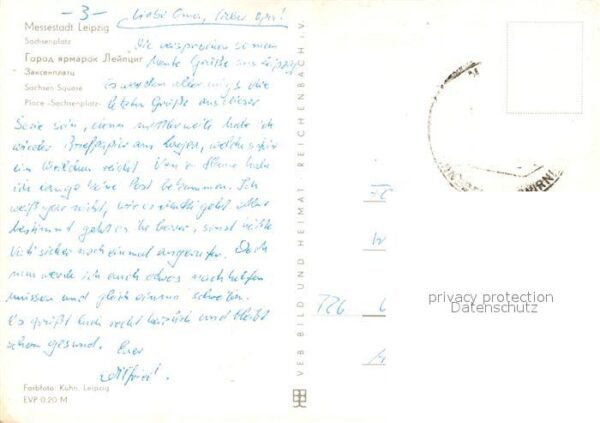 -3-
Liebe Oma, lieber Opa!
Messestadt Leipzig
Sachsenplatz
Город ярмарок Лейпциг
Заксенплатц
Sachsen Square
Place «Sachsenplatz»
Wie versprochen so nun
heute Grüße aus Leipzig
Es werden allerdings die
letzten Grüße aus dieser
Serie sein, denn mittlerweile habe ich
wieder Briefpapier am liegen, welches für
ein Weilchen reicht. Von habe
ich lange keine Post bekommen. Ich
weiß gar nicht, wie es geht aber
bestimmt geht es besser, sonst hätte
Vati sicher noch einmal angerufen. Doch
nun werde ich auch etwas nachhelfen
müssen und gleich einmal schreiben.
Es grüßt Euch recht herzlich und bleibt
schön gesund. Euer
Farbfoto: Kühn, Leipzig
EVP 0.20 M
VEB BILD UND HEIMAT REICHENBACH i. V.
726
privacy protection
Datenschutz